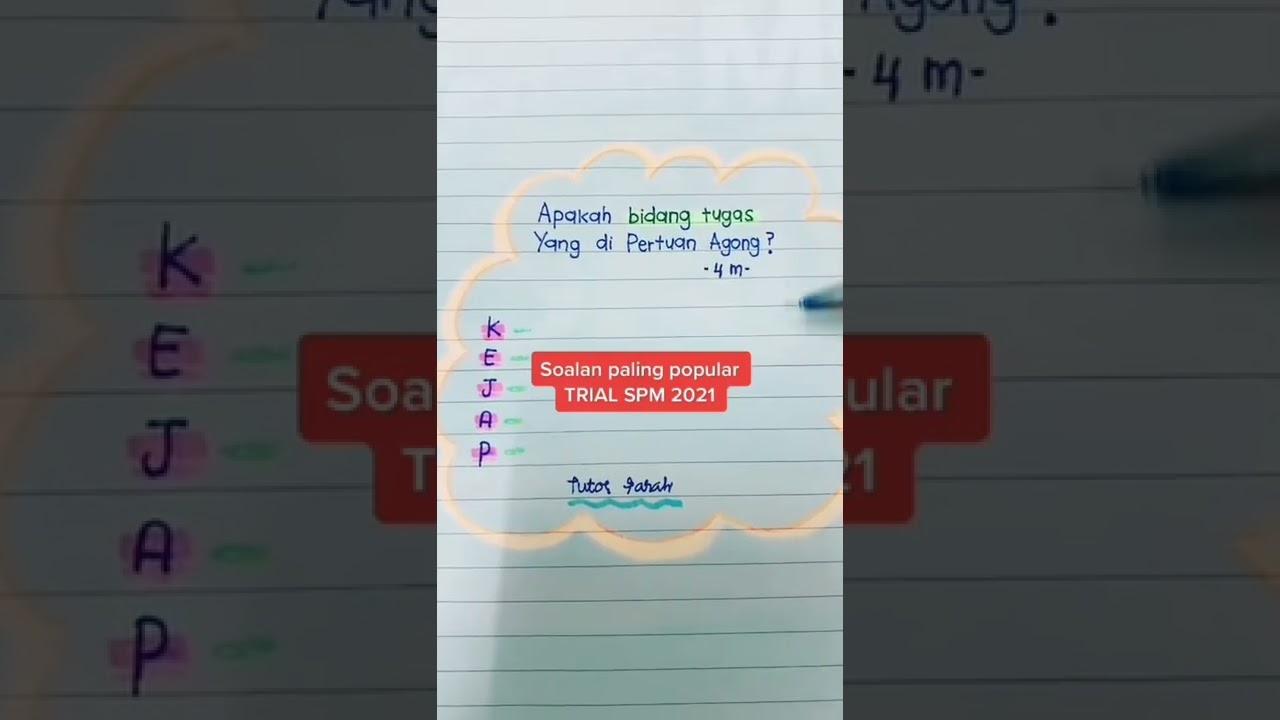 Apakah bidang tugas
Yang di Pertuan Agong?
-4 m-
K -
E -
J -
A -
P -
Soalan paling popular
TRIAL SPM 2021
Tutor Farah